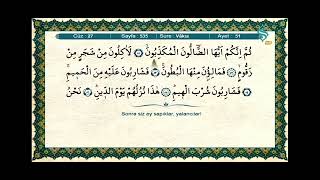 Cüz : 27 Sayfa : 535 Sure : Vâkıa Ayet : 51
ثُمَّ اِنَّكُمْ اَيُّهَا الضَّٓالُّونَ الْمُكَذِّبُونَۙ لَاٰكِلُونَ مِنْ شَجَرٍ مِنْ
زَقُّومٍۙ فَمَالِؤُ۫نَ مِنْهَا الْبُطُونَۚ فَشَارِبُونَ عَلَيْهِ مِنَ الْحَمِيمِۚ
فَشَارِبُونَ شُرْبَ الْهِيمِۜ هٰذَا نُزُلُهُمْ يَوْمَ الدِّينِۜ نَحْنُ
Sonra siz ey sapıklar, yalancılar!